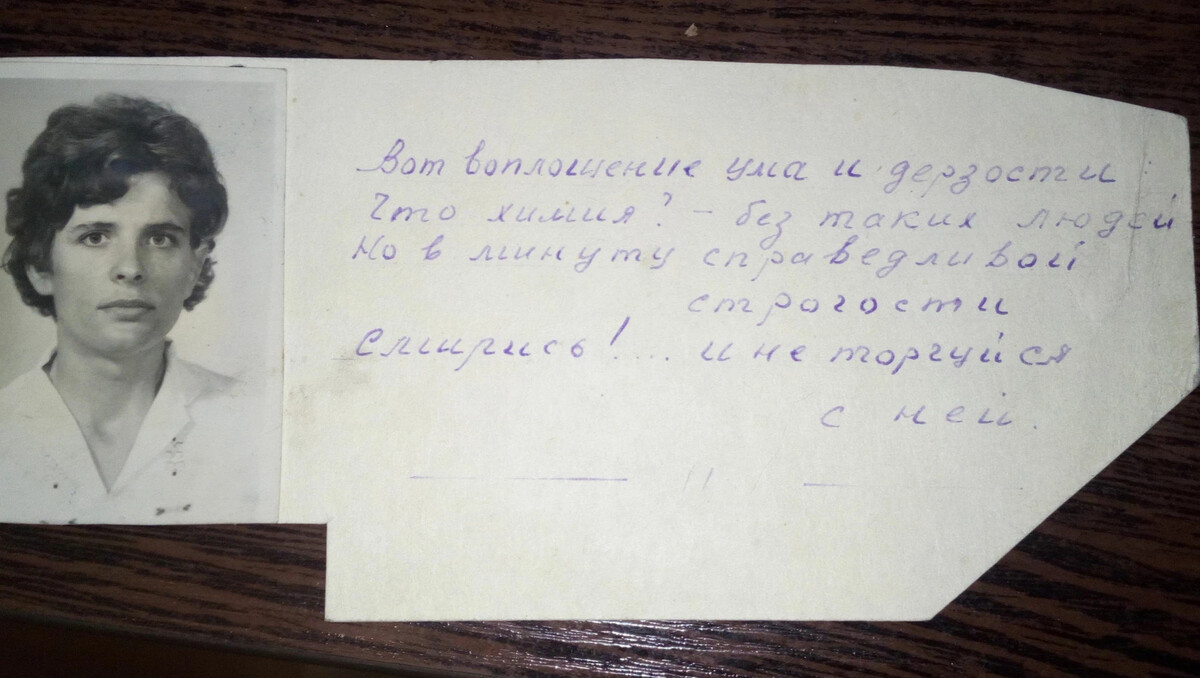 Вот воплощение ума и дерзости
Что химия? - без таких людей
Но в минуту справедливой
строгости
Смирись!... и не торгуйся
с ней.